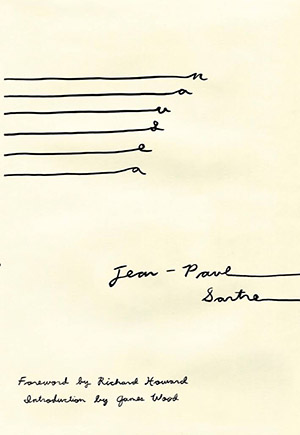 n
a
u
s
e
a
Jean-Paul
Sartre
Foreword by Richard Howard
Introduction by James Wood